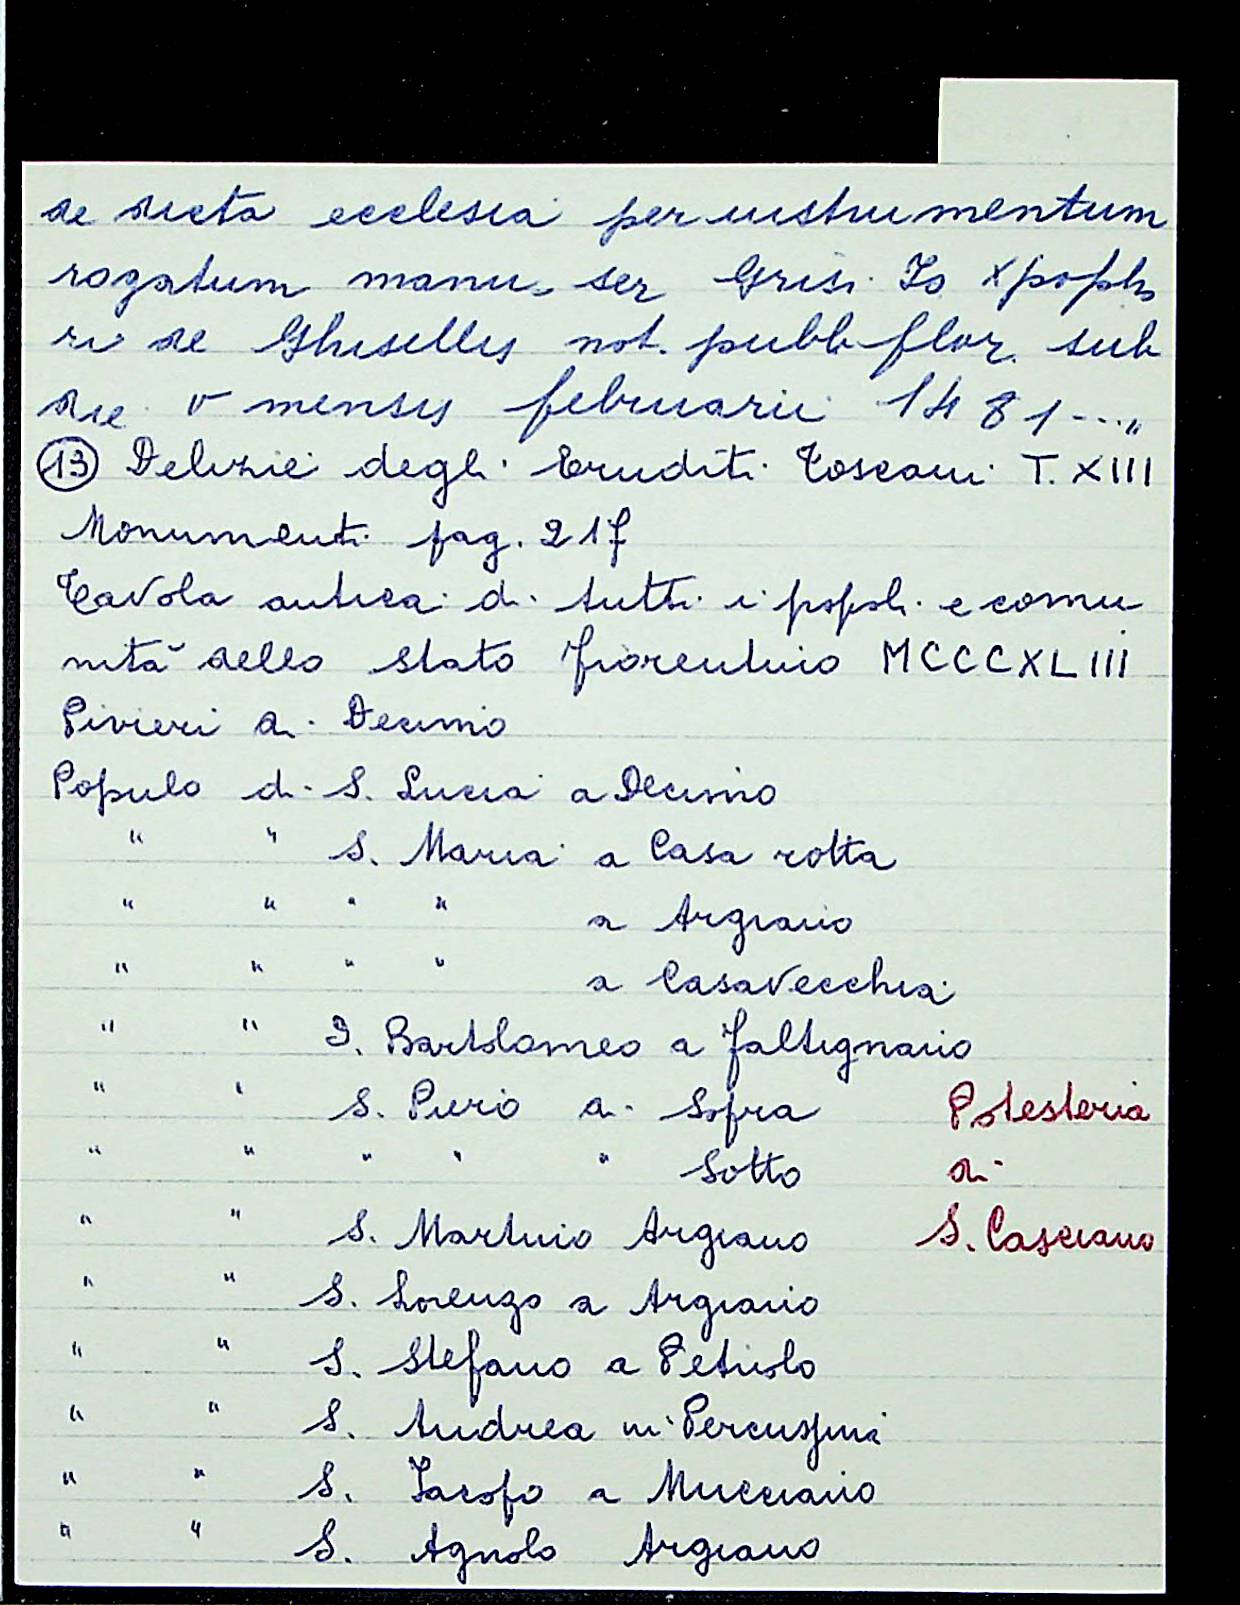 de dicta ecclesia per instrumentum
rogatum manu ser Grisi Io xpopho
ri de Ghisellis not. pubb flor. sub
die V mensis februarii 1481...„
(13) Delizie degli Eruditi Toscani T. XIII
Monumenti pag. 217
Tavola antica di tutti i popoli e comu
nità dello stato fiorentino MCCCXLIII
Pivieri di Decimo
Populo di S. Lucia a Decimo
" " S. Maria a Casa rotta
" " " " a Argiano
" " " " a Casavecchia
" " S. Bartolomeo a Faltignano
" " S. Piero di Sopra Potesteria
" " " " " Sotto di
" " S. Martino Argiano S. Casciano
" " S. Lorenzo a Argiano
" " S. Stefano a Petriolo
" " S. Andrea in Percussina
" " S. Iacopo a Mucciano
" " S. Agnolo Argiano